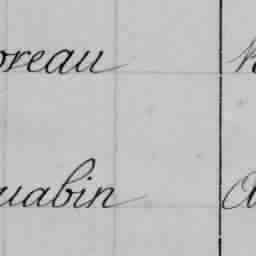 oreau
uabin